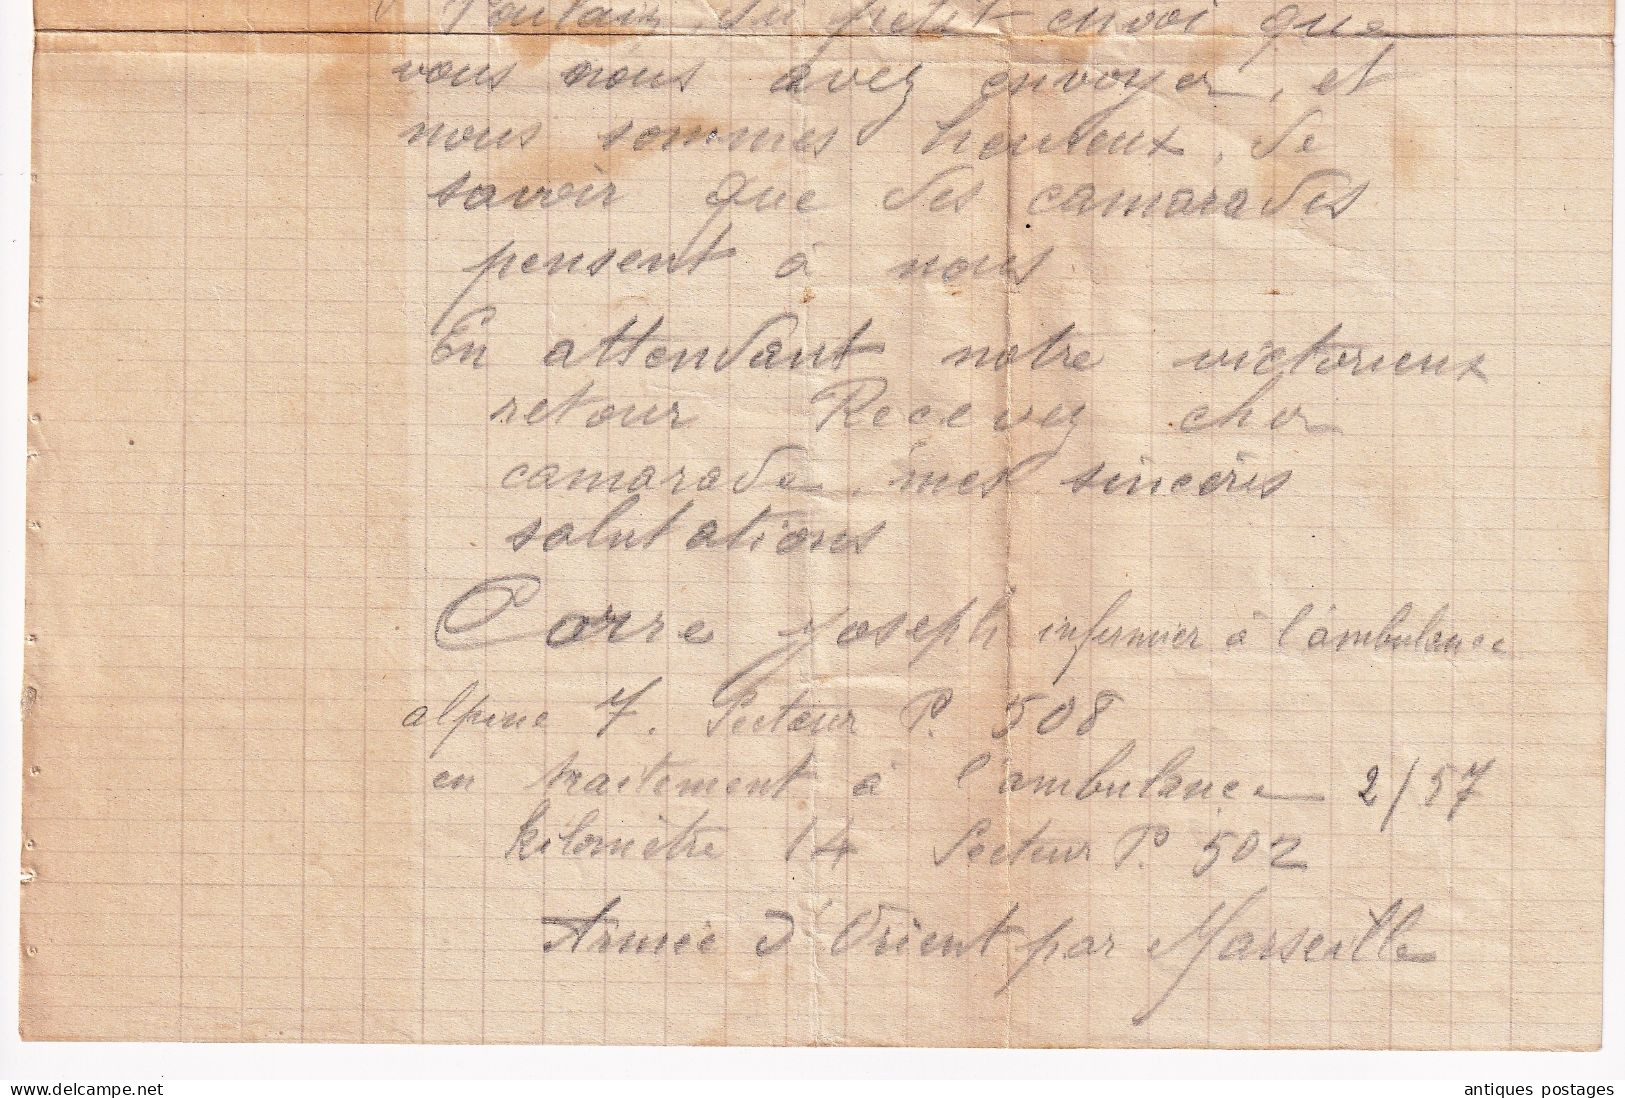 du petit envoi que
vous nous avez envoyer, et
nous sommes heureux, de
savoir que des camarades
pensent à nous
En attendant notre victorieux
retour Recevez cher
camarade, mes sincères
salutations
Corre Joseph infirmier à l'ambulance
alpine 7. Secteur P. 508
en traitement à l'ambulance 2/57
kilomètre 14 Secteur P. 502
Armée d'Orient par Marseille
www.delcampe.net
antiques postages